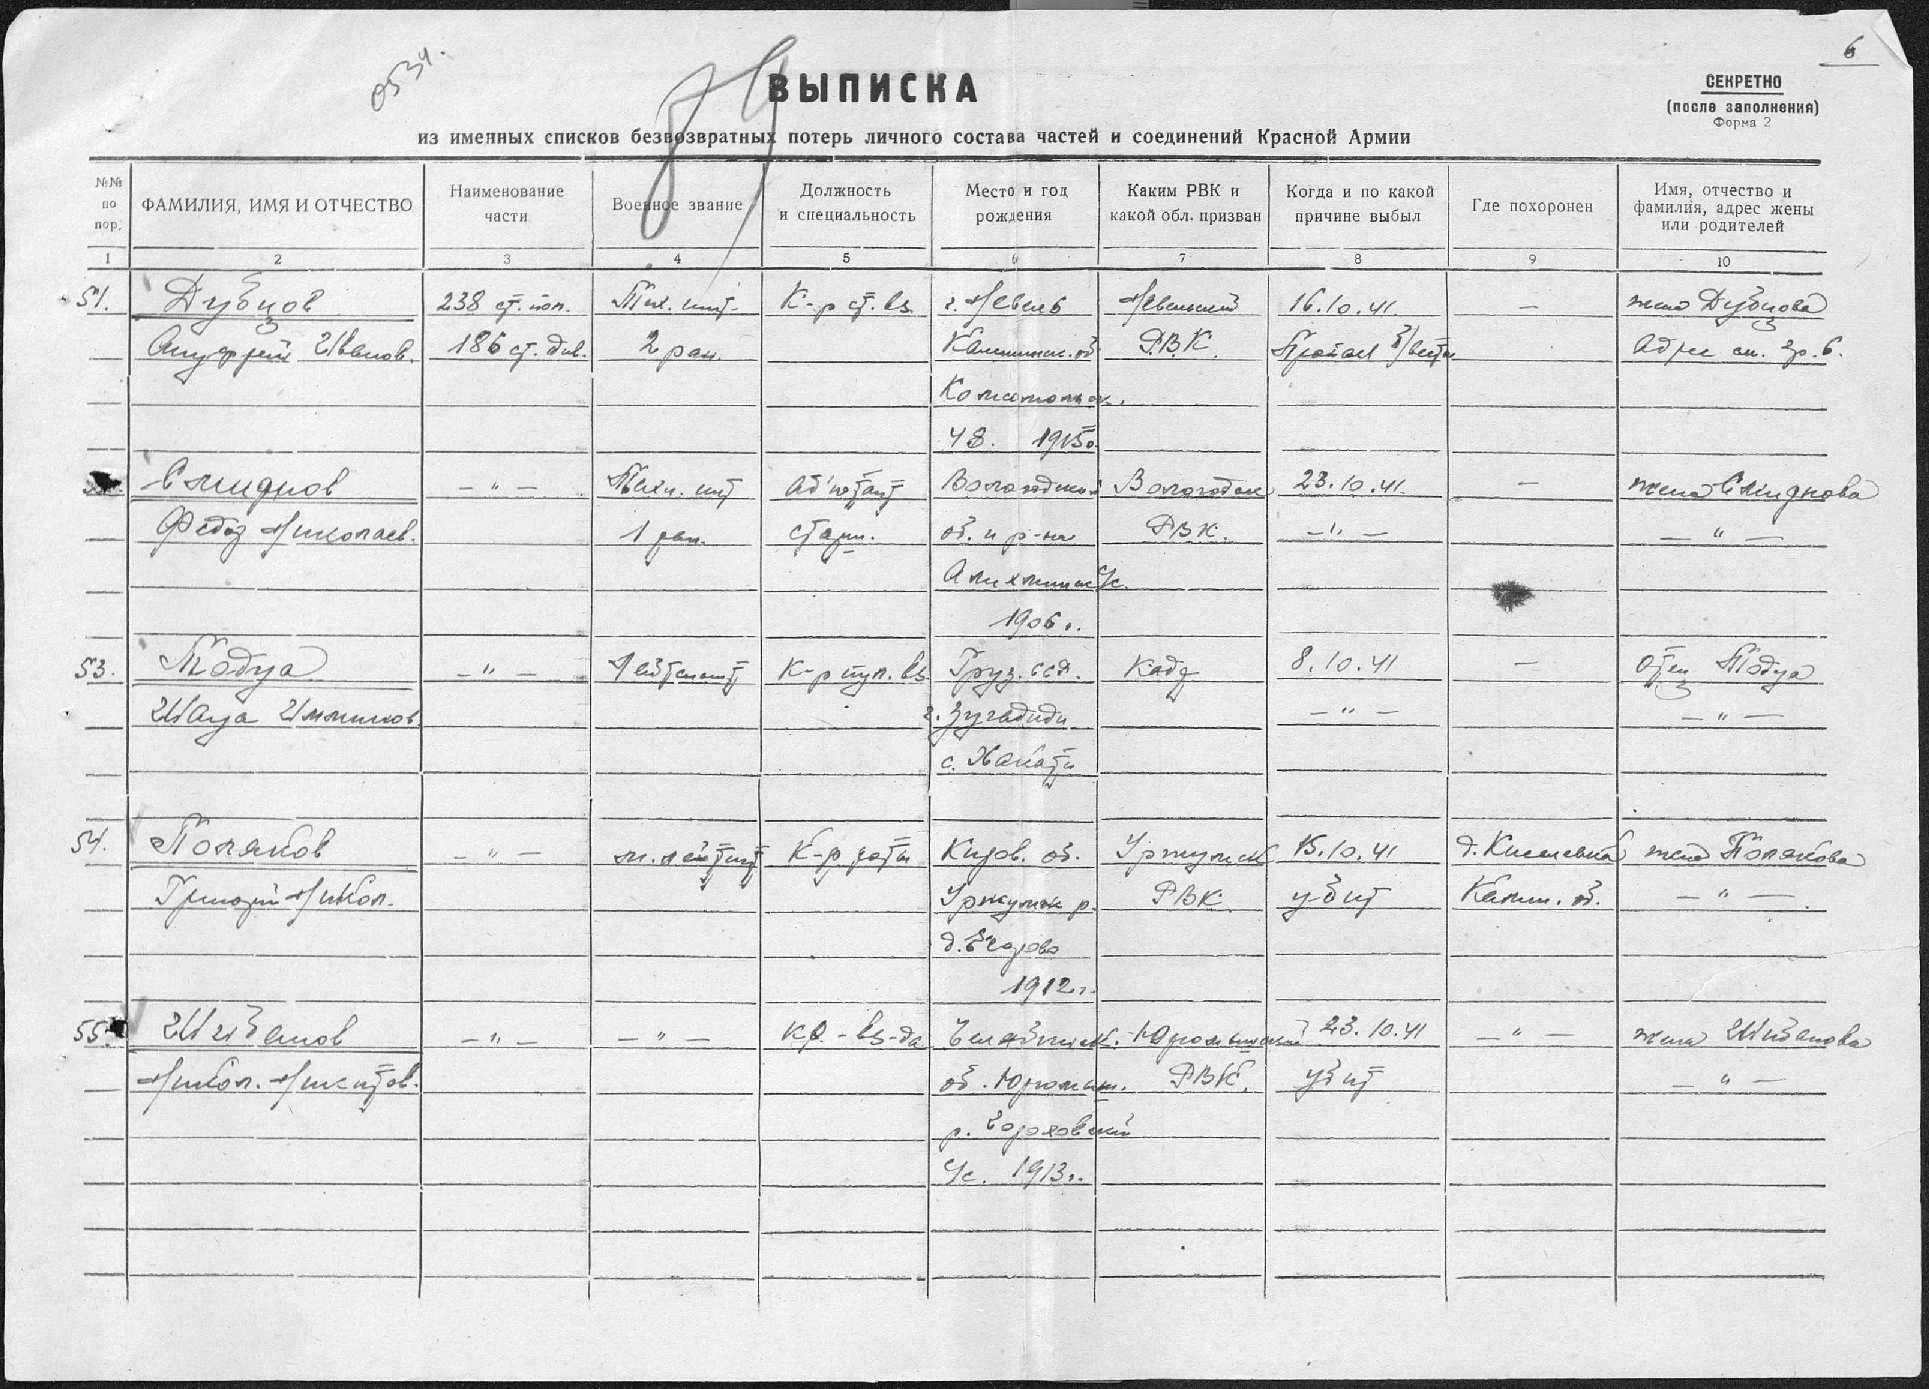 6
0534.
ВЫПИСКА
СЕКРЕТНО
(после заполнения)
Форма 2
из именных списков безвозвратных потерь личного состава частей и соединений Красной Армии
№№ по пор. ФАМИЛИЯ, ИМЯ И ОТЧЕСТВО Наименование части Военное звание Должность и специальность Место и год рождения Каким РВК и какой обл. призван Когда и по какой причине выбыл Где похоронен Имя, отчество и фамилия, адрес жены или родителей
1 2 3 4 5 6 7 8 9 10
51. Дубцов 238 ст. пол. Тех. инт. К-р ст. вз. г. Невель Невельский 16.10.41 — жена Дубцова
Ануфрий Иванов. 186 ст. див. 2 ран. Калининск. об. РВК. Пропал б/вести Адрес см. гр. 6.
Комсомольск.
48. 1915г.
Смирнов — " — Техн. инт. Ад'ютант Вологодской Вологодск 23.10.41. — жена Смирнова
Федор Николаев. 1 ран. старш. об. и р-на РВК. — " — — " —
с/с.
1906г.
53. Тодуа — " — Лейтенант К-р пул. вз. Груз. сср. Кадр 8.10.41 — Отец Тодуа
г. Зугдиди — " — — " —
с.
54. Поляков — " — м. лейтент К-р роты Киров. об. Уржумск 15.10.41 д. Киселевка жена Полякова
Григорий Никол. Уржумск р. РВК убит Калин. об. — " —
д.
1912г.
55. Шибанов — " — — " — КР - вз-да Челябинск. 23.10.41 — " — жена Шибанова
Никол. Никитов. об. РВК. убит — " —
р.
с/с. 1913г.